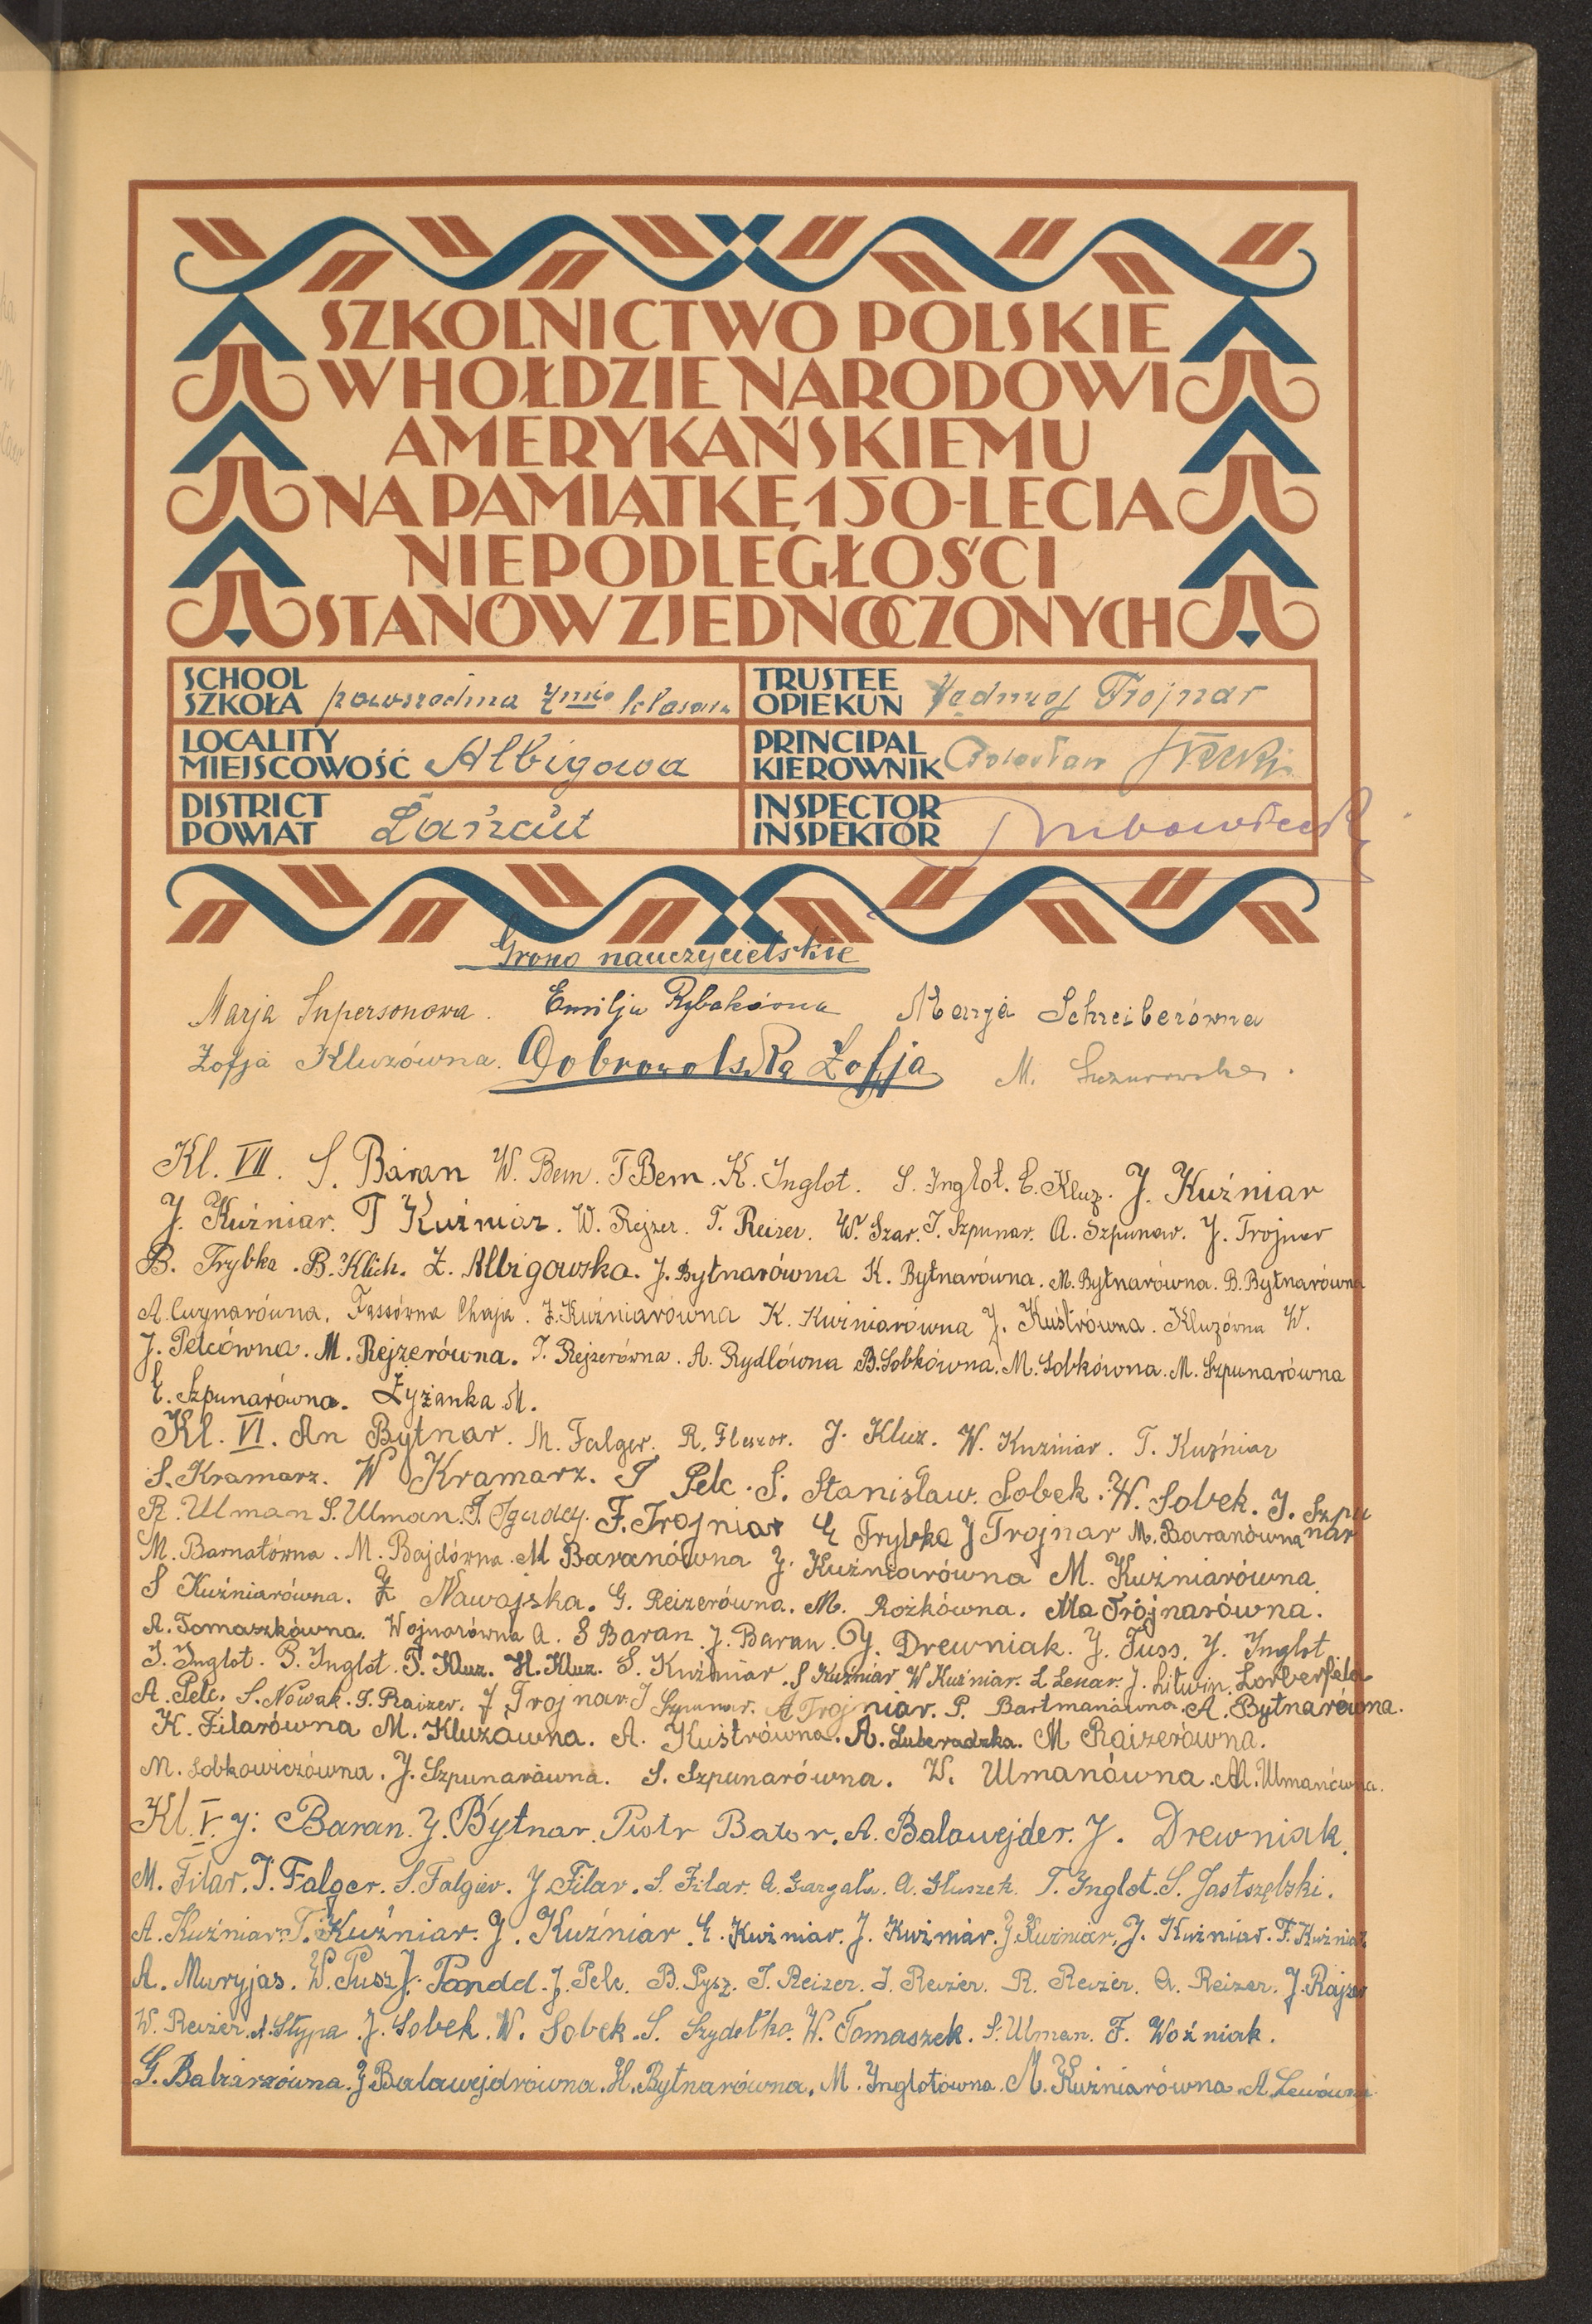 SZKOLNICTWO POLSKIE
W HOŁDZIE NARODOWI
AMERYKAŃSKIEMU
NA PAMIĄTKĘ 150-LECIA
NIEPODLEGŁOŚCI
STANÓW ZJEDNOCZONYCH
SCHOOL
SZKOŁA powszechna 7mio klasowa
TRUSTEE
OPIEKUN Jędrzej Trojnar
LOCALITY
MIEJSCOWOŚĆ Albigowa
PRINCIPAL
KIEROWNIK
DISTRICT
POWIAT Łańcut
INSPECTOR
INSPEKTOR
Grono nauczycielskie
Marja Supersonowa. Emilja Rybakówna Marja Schreiberówna
Zofja Kluzówna. Dobrowolska Zofja M.
Kl. VII. S. Baran W. Bem. T Bem. K. Inglot. S. Inglot. E. Kluz. J. Kuźniar
J. Kuźniar. T Kuźniar. W. Rejzer. T. Reizer. W. Szar. J. Szpunar. A. Szpunar. J. Trojnar
B. Trybka. B. Klich. Z. Albigowska. J. Bytnarówna K. Bytnarówna. M. Bytnarówna. B. Bytnarówna
A. Cwynarówna. Fassówna Chaja. Z. Kuźniarówna K. Kuźniarówna J. Kuśtrówna. Kluzówna W.
J. Pelcówna. M. Rejzerówna. J. Rejzerówna. A. Rydlówna B. Sobkówna. M. Sobkówna. M. Szpunarówna
E. Szpunarówna. Zyzanka M.
Kl. VI. An Bytnar. M. Falger. R. Fleszar. J. Kluz. W. Kuźniar. T. Kuźniar
S. Kramarz. W Kramarz. T Pelc. S. Stanisław. Sobek. W. Sobek. J. Szpunar
R. Ulman S. Ulman. F. Trojniar E Trybka J Trojnar M. Baranówna
M. Barnatówna. M. Bajdówna. M Baranówna J. Kuźniarówna M. Kuźniarówna.
S Kuźniarówna. Z Nawojska. G. Reizerówna. M. Rożkówna. Ma Trójnarówna.
A. Tomaszkówna. Wojnarówna A. S Baran J. Baran. J. Drewniak. J. Fuss. J. Inglot
J. Inglot. B. Inglot. T. Kluz. H. Kluz. S. Kuźniar. S Kuźniar W Kuźniar. L Lenar. J. Litwin. Lorberfeld
A. Pelc. S. Nowak. T. Raizer. J Trojnar. J Szpunar. A Trojniar. P. Bartmanówna. A. Bytnarówna.
K. Filarówna M. Kluzówna. A. Kuśtrówna. A. Luberadzka. M Raizerówna.
M. Sobkowiczówna. J. Szpunarówna. S. Szpunarówna. W. Ulmanówna. M. Ulmanówna.
Kl. V. J. Baran. J. Bytnar. Piotr Bator. A. Balawejder. J. Drewniak.
M. Filar. J. Falger. S. Falgier. J. Filar. S. Filar. A. Gargała. A. Głuszek. T. Inglot. S. Jastszębski.
A. Kuźniar. T. Kuźniar. J. Kuźniar. E. Kuźniar. J. Kuźniar. J. Kuźniar. J. Kuźniar. F. Kuźniar
A. Muryjas. W. Pusz J. Pandd. J. Pelc. B. Pysz. J. Reizer. J. Reizer. R. Reizer. A. Reizer. J. Rajzer
W. Reizer. A. Stypa. J. Sobek. W. Sobek. S. Szydełko. W. Tomaszek. S. Ulman. F. Woźniak.
G. Babiarzówna. J Balawejdrówna. H. Bytnarówna. M. Inglotówna. M. Kuźniarówna. A Lewówna